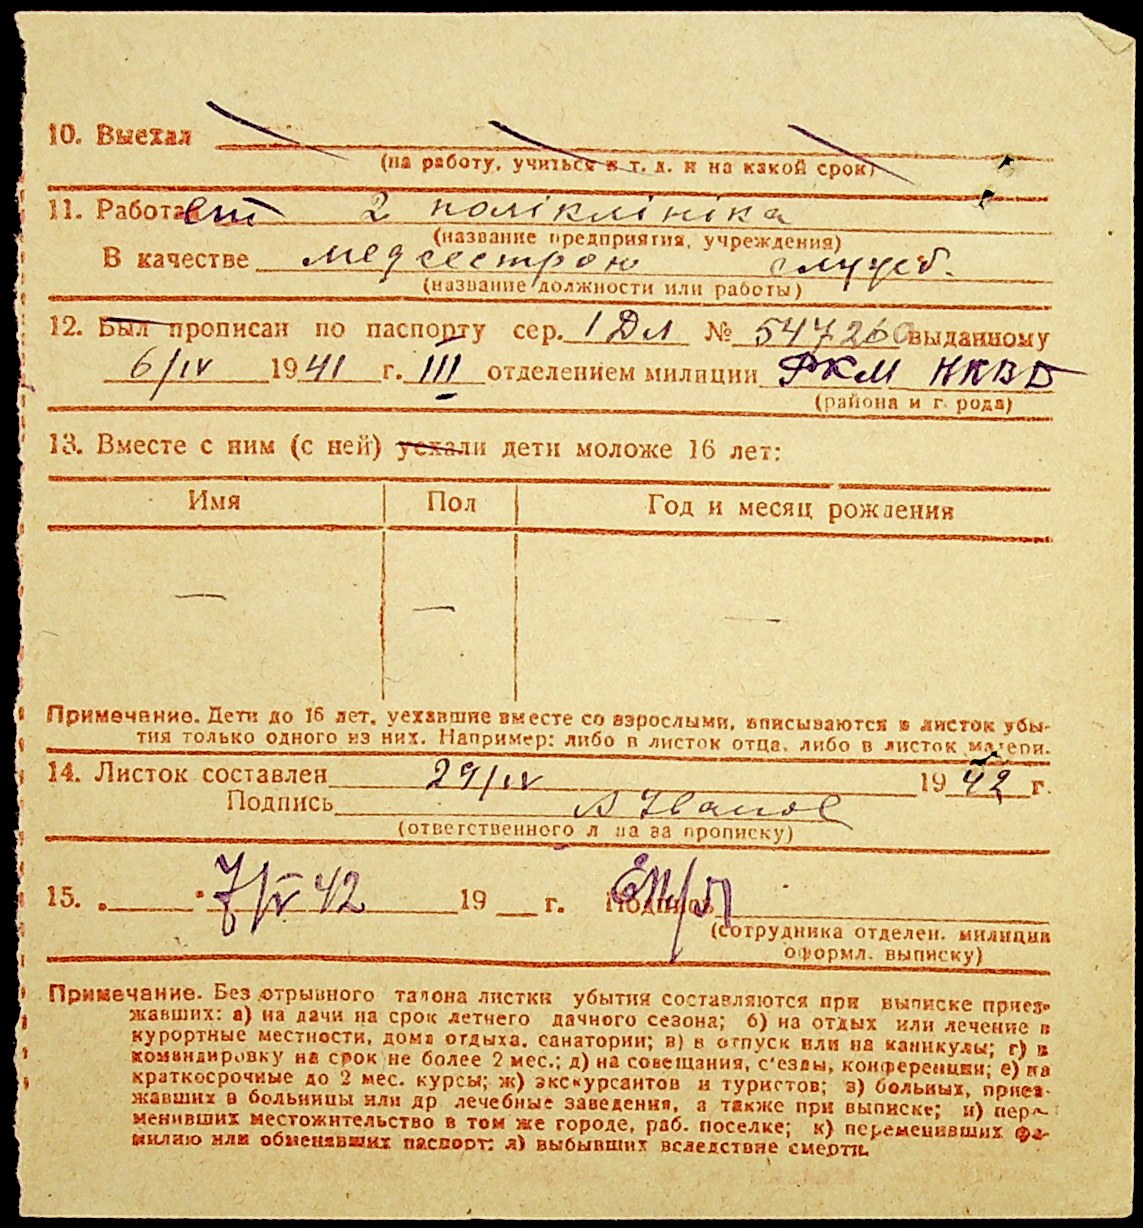 10. Выехал
(на работу, учиться и т. д. и на какой срок)
11. Работает 2 поліклініка
(название предприятия, учреждения)
В качестве медсестрою служб.
(название должности или работы)
12. Был прописан по паспорту сер. 1 Дл № 547260 выданному
6/IV 1941 г. III отделением милиции РКМ НКВД
(района и города)
13. Вместе с ним (с ней) уехали дети моложе 16 лет:
Имя Пол Год и месяц рождения
— — —
Примечание. Дети до 16 лет, уехавшие вместе со взрослыми, вписываются в листок убы-
тия только одного из них. Например: либо в листок отца, либо в листок матери.
14. Листок составлен 29/IV 1942 г.
Подпись Иванов
(ответственного лица за прописку)
15. 7/V 42 19 г. Подпись
(сотрудника отделен. милиции
оформл. выписку)
Примечание. Без отрывного талона листки убытия составляются при выписке приез-
жавших: а) на дачи на срок летнего дачного сезона; б) на отдых или лечение в
курортные местности, дома отдыха, санатории; в) в отпуск или на каникулы; г) в
командировку на срок не более 2 мес.; д) на совещания, с'езды, конференции; е) на
краткосрочные до 2 мес. курсы; ж) экскурсантов и туристов; з) больных, приез-
жавших в больницы или др лечебные заведения, а также при выписке; и) пере-
менивших местожительство в том же городе, раб. поселке; к) переменивших фа-
милию или обменявших паспорт; л) выбывших вследствие смерти.